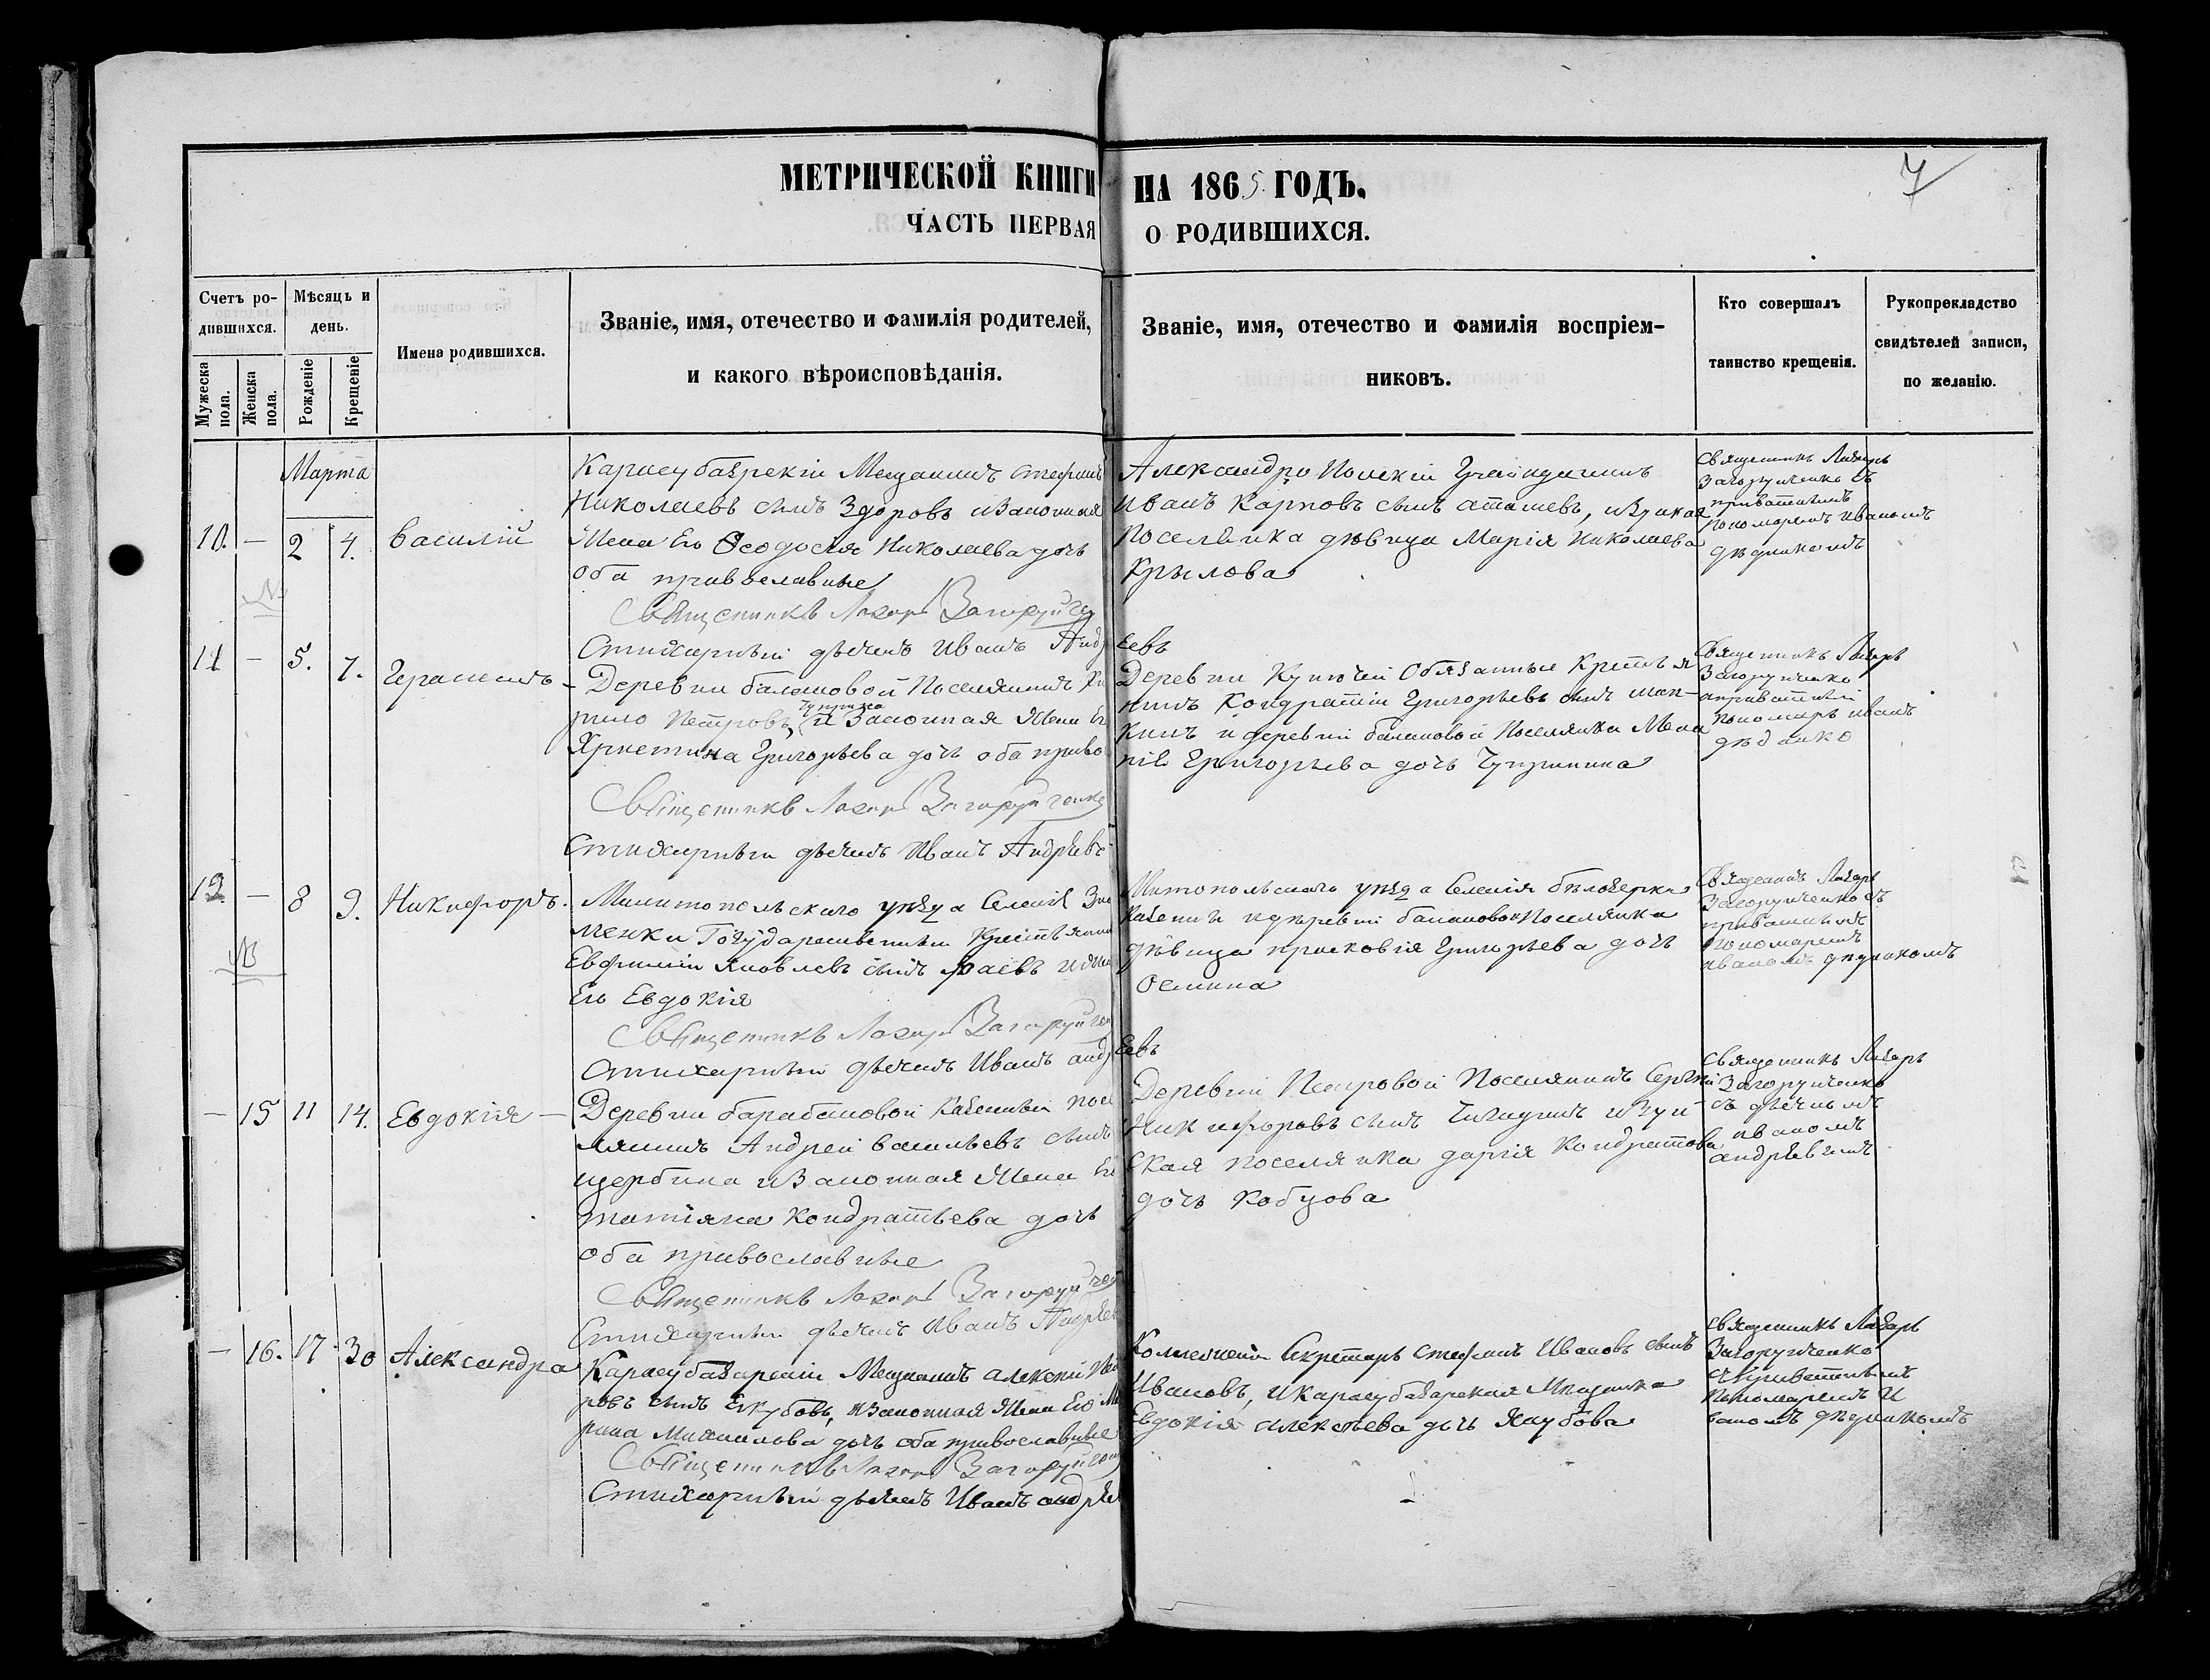 МЕТРИЧЕСКОЙ КНИГИ НА 1865. ГОДЪ.
7
ЧАСТЬ ПЕРВАЯ О РОДИВШИХСЯ.
Счетъ ро-
дившихся.
Мужеска пола.
Женска пола.
Мѣсяцъ и
день.
Рожденіе
Крещеніе
Имена родившихся.
Званіе, имя, отечество и фамилія родителей,
и какого вѣроисповѣданія.
Званіе, имя, отечество и фамилія воспріем-
никовъ.
Кто совершалъ
таинство крещенія.
Рукоприкладство
свидѣтелей записи,
по желанію.
Марта
10. — 2 4. Василій
Мещанинъ Стефанъ
Николаевъ сынъ Здоровъ изаконная
Жена Его Ѳеодосія Николаева дочь
оба православные
Священникъ Лазарь Загоруйче
Стихарный дьячекъ Иванъ Андреевъ
Иванъ Карповъ сынъ
Поселянка дѣвица Марія Николаева
Крылова
Священникъ Лазарь
Загорученко съ
пономаремъ Иваномъ
11 — 5. 7. Герасимъ —
Деревни балановой Поселянинъ Ки
рило Петровъ и Законная Жена Ег
Чуприна
Христина Григорьева дочь оба право
Священникъ Лазарь Загоруйченко
Стихарный дьячекъ Иванъ Андрѣевъ
Деревни Обязанные Крестья
нинъ Кондратій Григорьевъ сынъ
и деревни балановой Поселянка Мела
нія Григорьева дочь Чупринина
Священникъ Лазарь
Загорученко
пономарь Иванъ
12 — 8 9. Никифоръ.
Милитопольскаго уѣзда Селенія Зна
менки Государственный Крестьянин
Евфимій Яковлевъ сынъ
Его Евдокія
Священникъ Лазарь Загоруйчен
Стихарный дьячекъ Иванъ Андреевъ
уѣзда Селенія бѣлозерки
и деревни балановой Поселянка
дѣвица прасковія Григорьева дочь
Осмина
Священникъ Лазарь
Загорученко съ
пономаремъ
— 15 11 14. Евдокія —
Деревни барабановой Казенный посе
лянинъ Андрей васильевъ сынъ
щербина изаконная Жена Ег
татіяна Кондратьева дочь
оба православные
Священникъ Лазарь Загоруйчен
Стихарный дьячекъ Иванъ Андрѣев
Деревни Петровой Поселянинъ Сергѣй
Никифоровъ сынъ
ская поселянка дарія Кондратова
дочь Кобцова
Священникъ Лазарь
Загорученко
съ дьячкомъ
иваномъ
андрѣевымъ
— 16. 17. 30 Александра
Карасубазарскій Мещанинъ алексій
ровъ сынъ Екубовъ, изаконная Жена Его Ма
рина Михаилова дочь оба православные
Священникъ Лазарь Загоруйчен
Стихарный дьячекъ Иванъ андрѣев
Секретарь стефанъ Ивановъ сынъ
Ивановъ, и карасубазарская Мѣщанка
Евдокія алексѣева дочь Якубова
Священникъ Лазарь
Загорученко
пономаремъ И